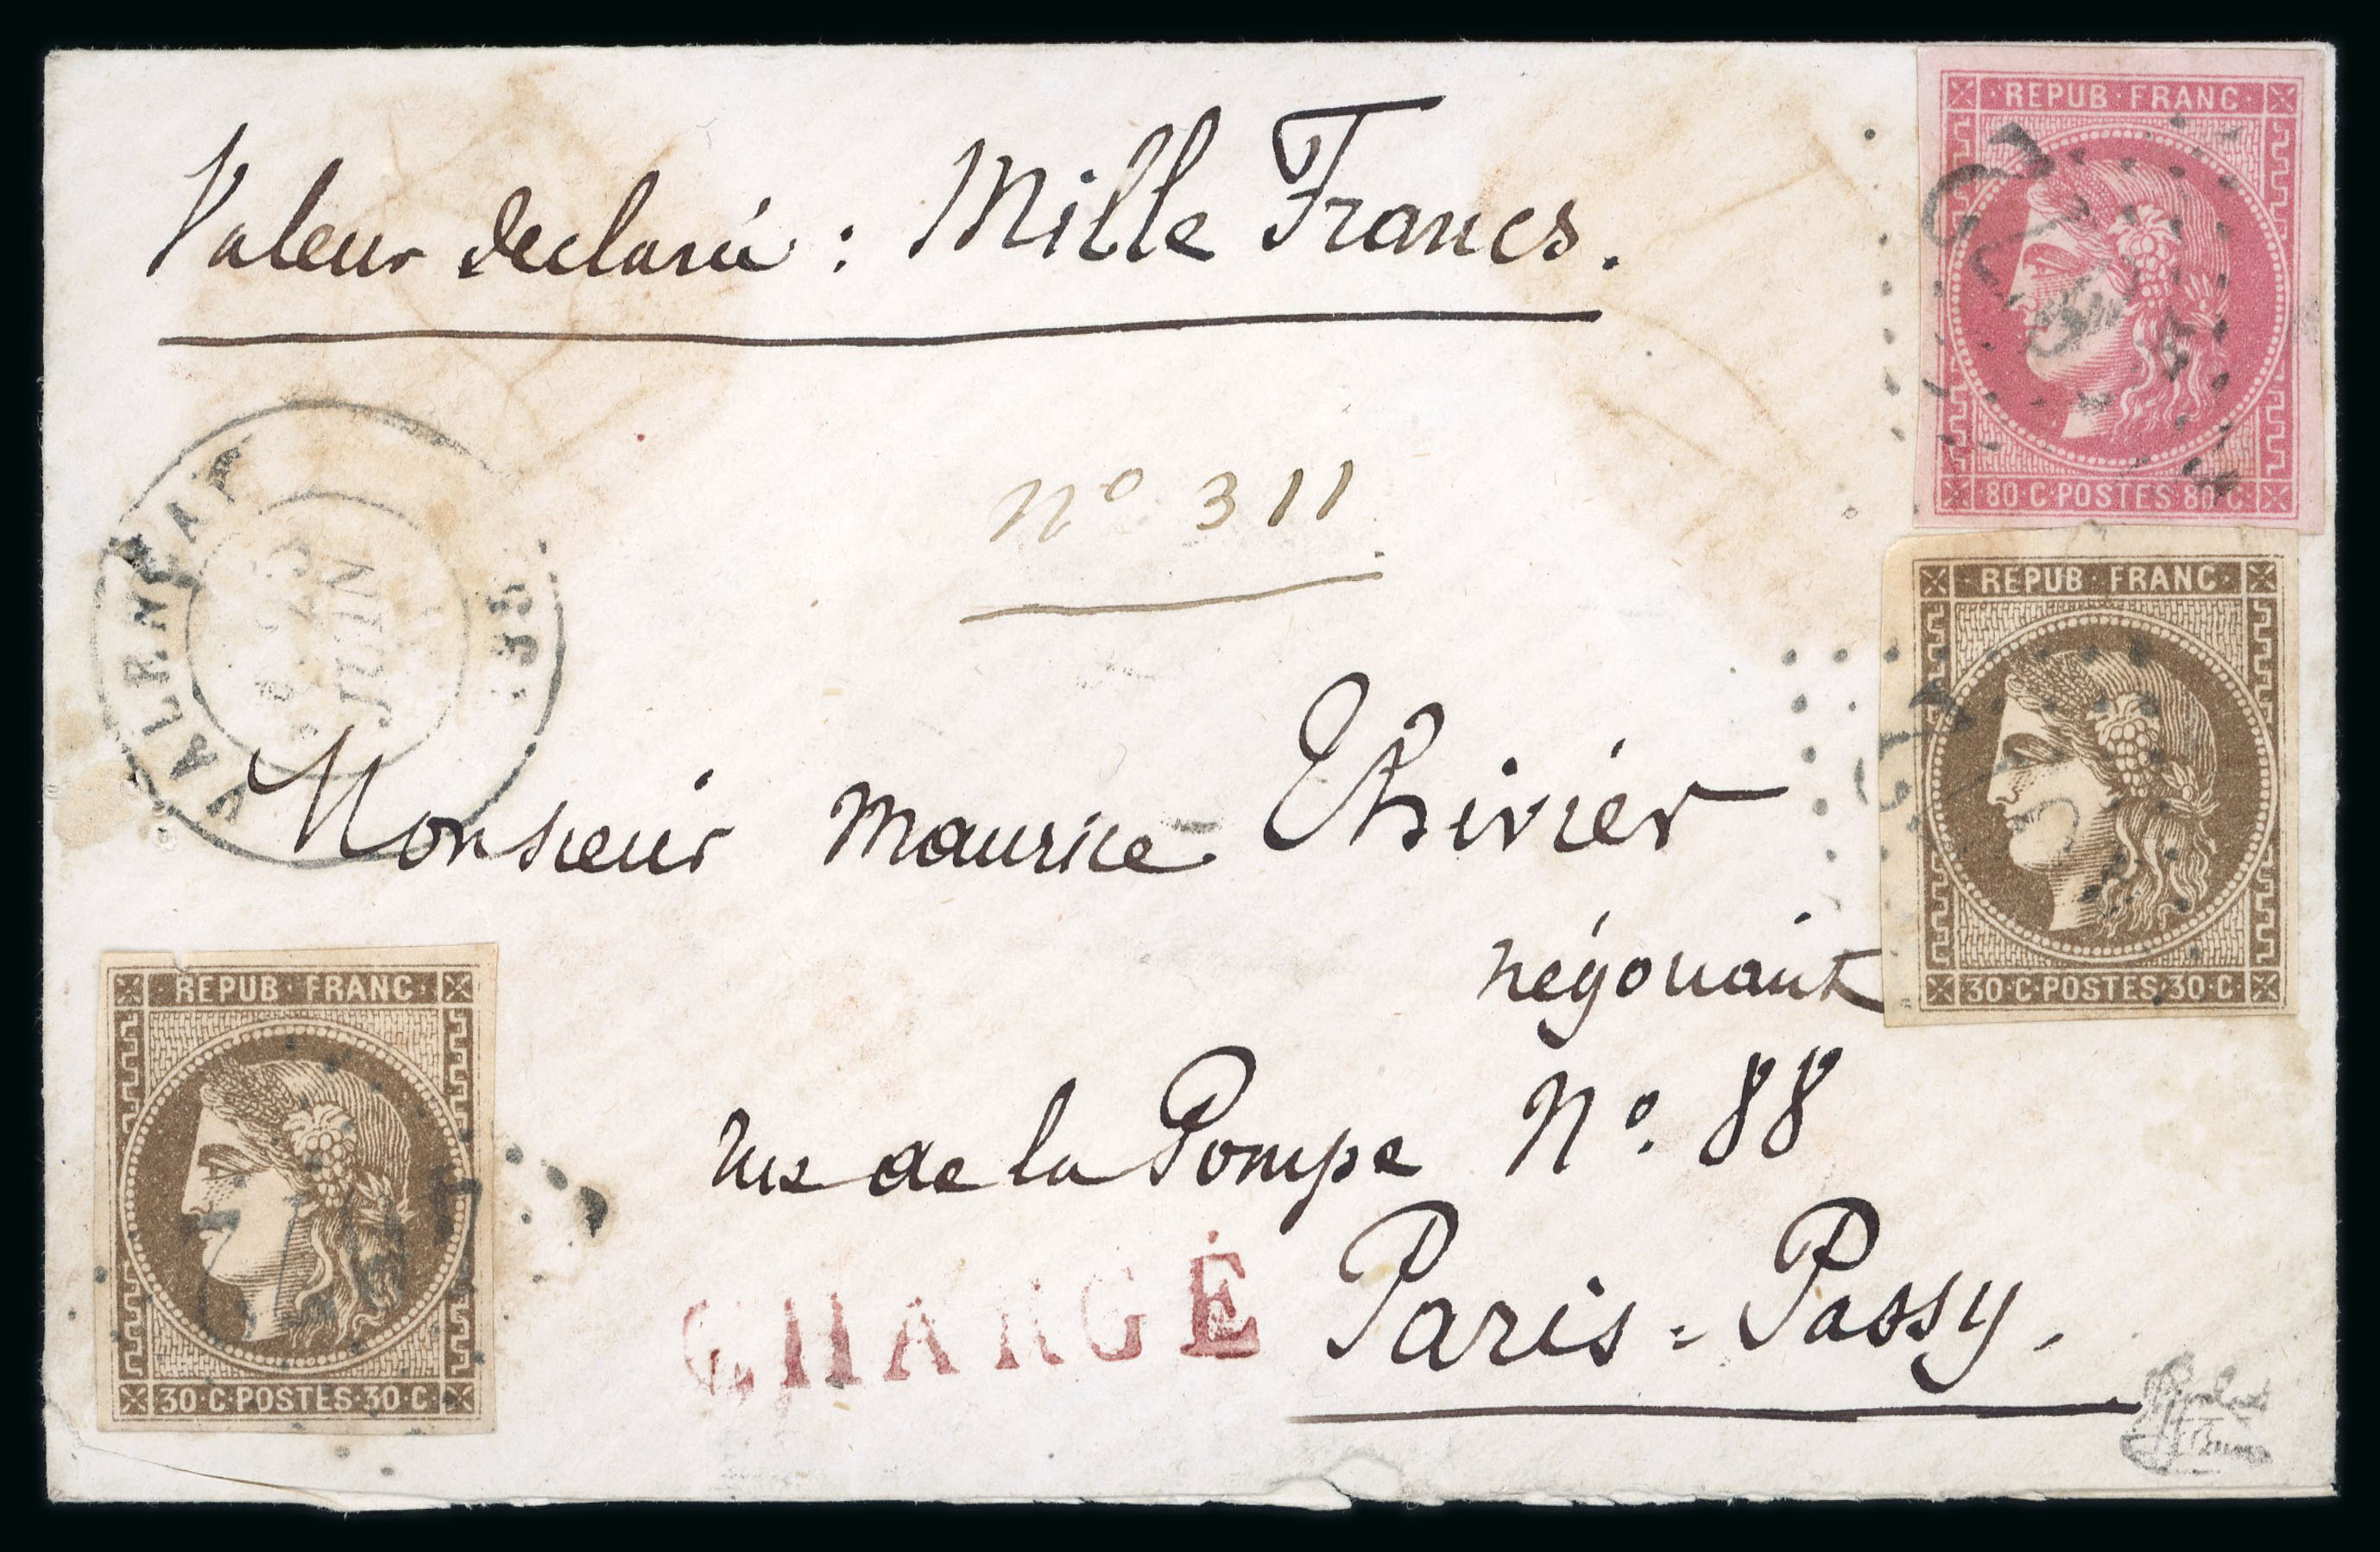 Valeur declarée : Mille Francs.
REPUB · FRANC ·
80 · C · POSTES · 80 · C
nº 311
JUIN
REPUB · FRANC ·
30 · C · POSTES · 30 · C
Monsieur Maurice Thivier
négociant
rue de la Pompe Nº. 88
Paris = Passy.
CHARGÉ
REPUB · FRANC ·
30 · C · POSTES · 30 · C